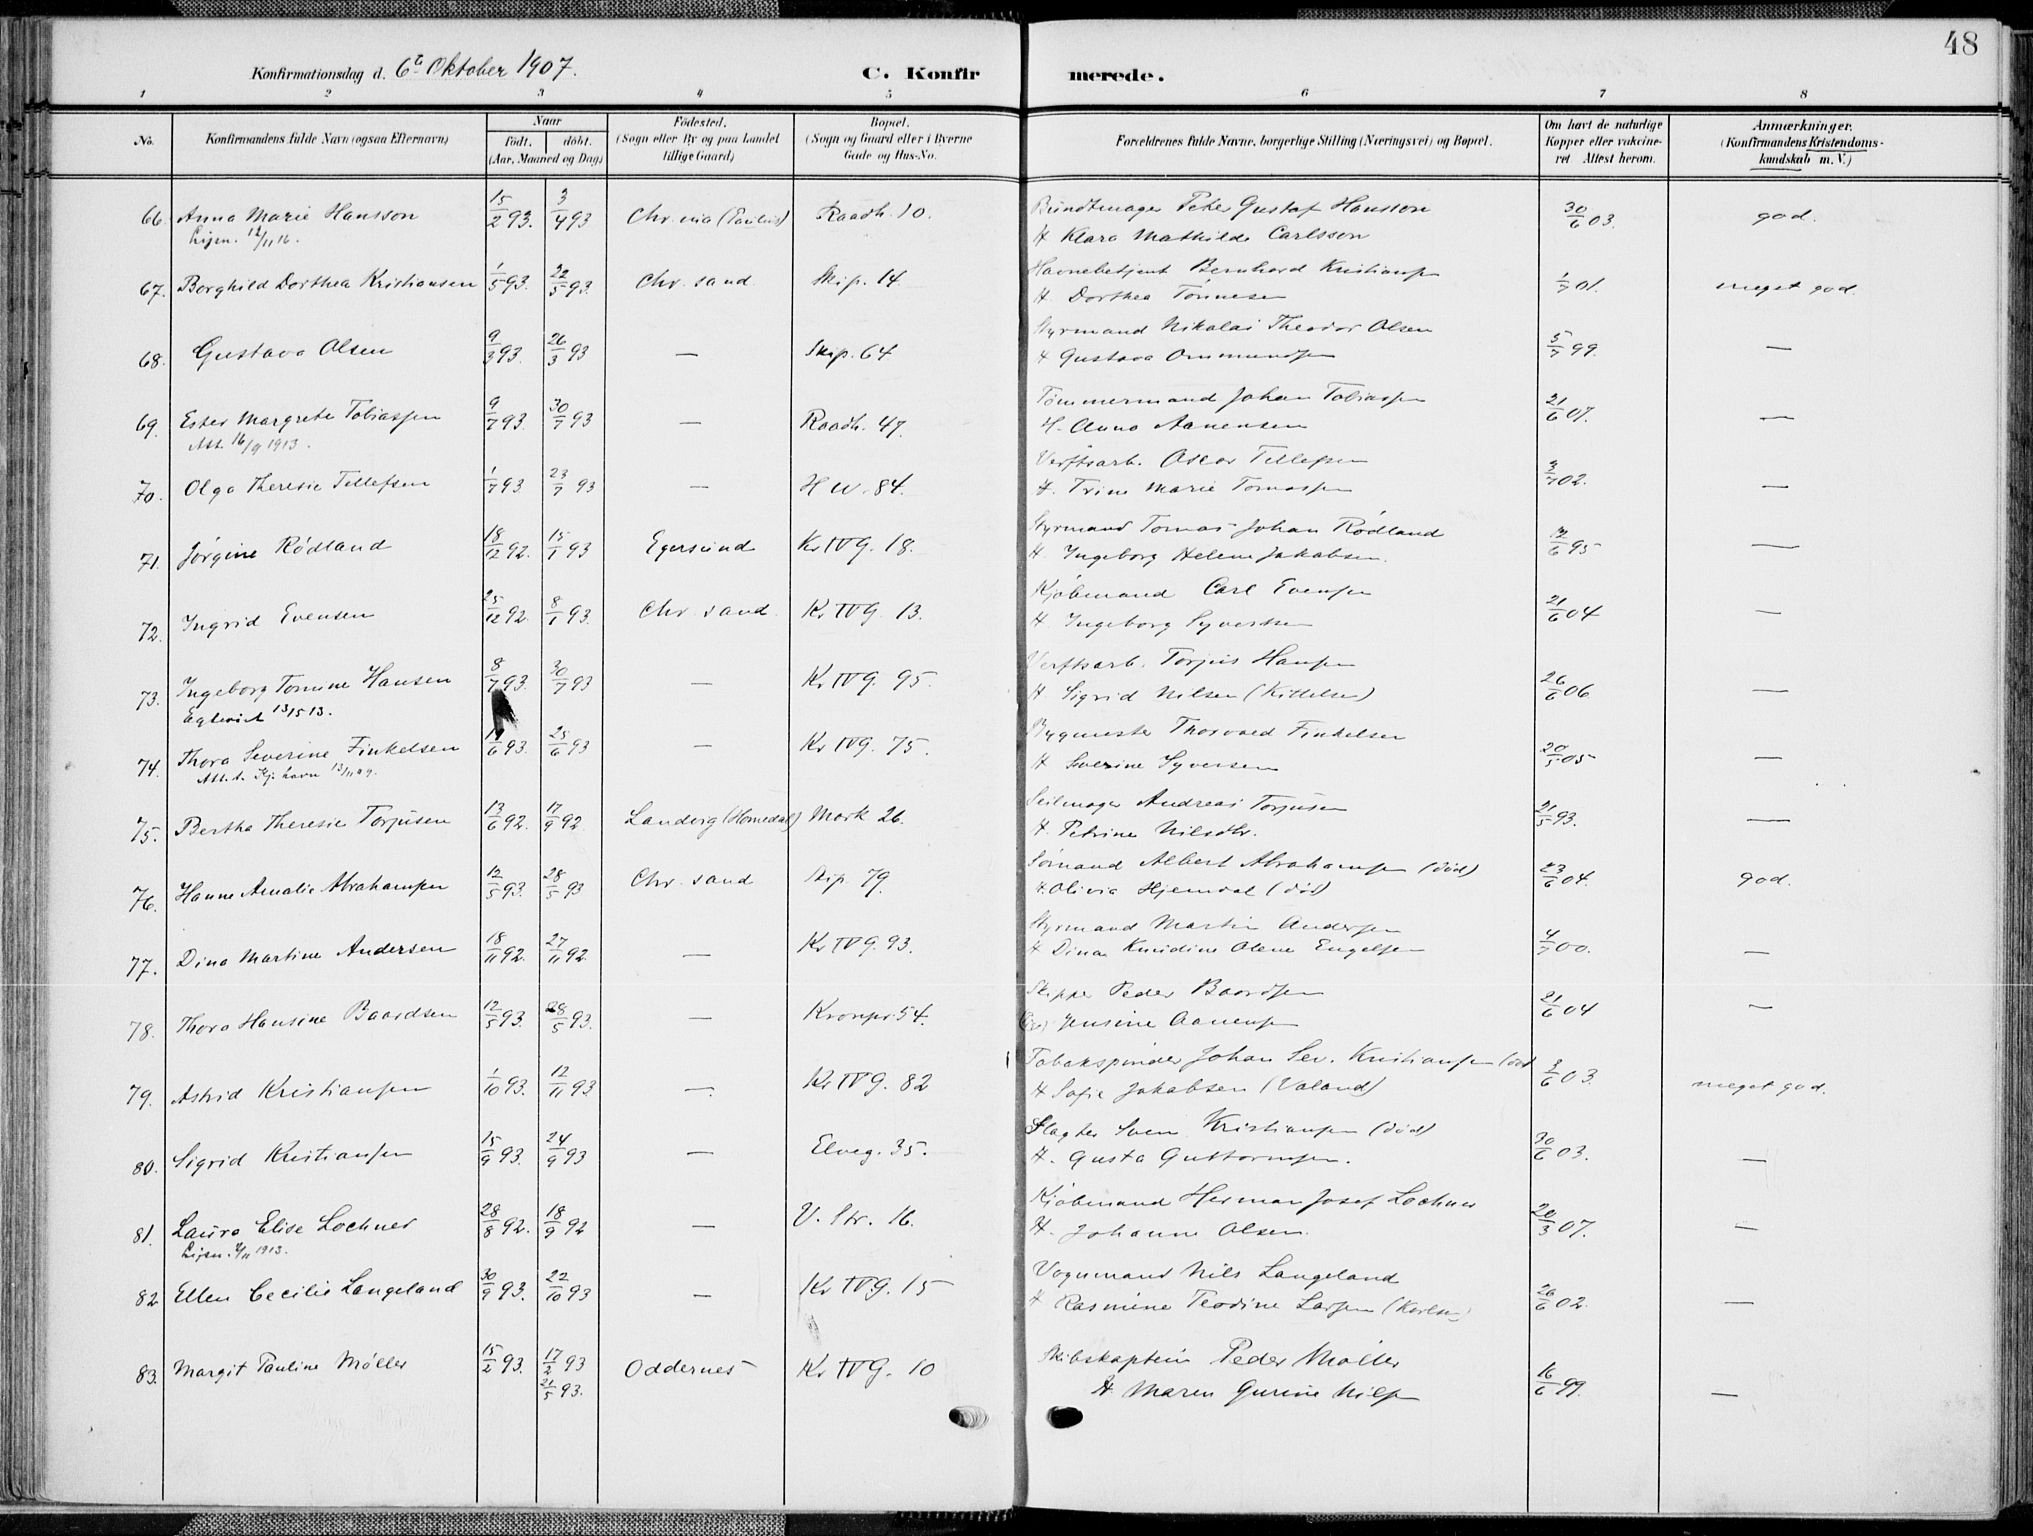 48
Konfirmationsdag d. 6te Oktober 1907. C. Konfirmerede.
1 2 3 4 5 6 7 8
No. Konfirmandens fulde Navn (ogsaa Efternavn) Naar født. døbt. (Aar, Maaned og Dag) Fødested. (Sogn eller By og paa Landet tillige Gaard) Bopæl. (Sogn og Gaard eller i Byerne Gade og Hus-No. Forældrenes fulde Navne, borgerlige Stilling (Næringsvei) og Bopæl. Om havt de naturlige Kopper eller vakcineret Attest herom. Anmærkninger. (Konfirmandens Kristendomskundskab m. V.)
66. Anna Marie Hansson 15/2 93. 3/4 93 Chr.nia (Paulus) Raadh. 10. Bundtmager Peter Gustaf Hansson 30/6 03. god.
Lysn. 12/11 16. H Klara Mathilde Carlsson
67. Borghild Dorthea Kristiansen 1/5 93. 22/5 93. Chr. sand Skip. 14. Havnebetjent Bernhard Kristiansen 1/7 01. meget god.
H. Dorthea Tønnesen
68. Gustava Olsen 9/3 93. 26/3 93 — Skip. 64 Styrmand Nikolai Theodor Olsen 5/7 99. —
H Gustava Ommundsen
69. Ester Margrete Tobiassen 9/7 93. 30/7 93 — Raadh. 47. Tømmermand Johan Tobiassen 21/6 07. —
Att. 16/9 1913. H. Anna Aanensen
70. Olga Theresie Tellefsen 1/7 93 23/7 93 — H W. 84. Verftsarb. Oscar Tellefsen 3/7 02. —
H. Trine Marie Tomassen
71. Jørgine Rødland 18/12 92. 15/1 93 Egersund Kr IV G. 18. Styrmand Tomas Johan Rødland 12/6 95 —
H. Ingeborg Helene Jakobsen.
72. Ingrid Evensen 25/12 92. 8/1 93. Chr. sand Kr IV G. 13. Kjøbmand Carl Evensen 21/6 04 —
H Ingeborg Syvertsen
73. Ingeborg Tomine Hansen 8/7 93. 30/7 93 — Kr IV G. 95. Verftsarb. Torjus Hansen 26/6 06 —
Egtevid 13/5 13. H Sigrid Nilsen (Kittelsen)
74. Thora Severine Finkelsen 6 93. 25/6 93 — Kr IV G. 75. Bygmester Thorvald Finkelsen 20/5 05 —
Att. t. Kj.havn 13/11 09. H Severine Syversen
75. Bertha Theresie Torjusen 13/6 92. 17/9 92 Landvig (Homedal) Mark 26. Seilmager Andreas Torjusen 21/5 93. —
H. Petrine Nilsdtr.
76. Hanne Amalie Abrahamsen 12/5 93. 28/5 93 Chr. sand Skip. 79. Sømand Albert Abrahamsen (død) 23/6 04. god.
H Olivia Hjemdal (død)
77. Dina Martine Andersen 18/11 92. 27/11 92 — Kr IV G. 93. Styrmand Martin Andersen 4/7 00. —
H Dina Knudine Olene Engelsen
78. Thora Hansine Baardsen 12/5 93. 28/5 93. — Kronpr. 54. Skipper Peder Baardsen 21/6 04 —
Jensine Aanensen
79. Astrid Kristiansen 1/10 93. 12/11 93 — Kr IV G. 82 Tobakspinder Johan Sev. Kristiansen (død 3/6 03. meget god.
H Sofie Jakobsen (Valand)
80. Sigrid Kristiansen 15/9 93. 24/9 93 — Elveg. 35. Slagter Sven Kristiansen (død) 30/6 03. —
H. Gusta Guttormsen.
81. Laura Elise Lochner 28/8 92. 18/9 92 — V. Str. 16. Kjøbmand Herman Josef Lochner 20/3 07. —
Lysn. 1913. H. Johanne Olsen.
82 Ellen Cecilie Langeland 30/9 93. 22/10 93 — Kr IV G. 15 Vognmand Nils Langeland 26/6 02. —
H Rasmine Teodine Larsen (Karlsen)
83. Margit Pauline Møller 15/2 93. 17/2 93 Oddernes Kr IV G. 10 Skibskaptein Peder Møller 16/6 99. —
21/5 93. H Maren Gurine Nilsen